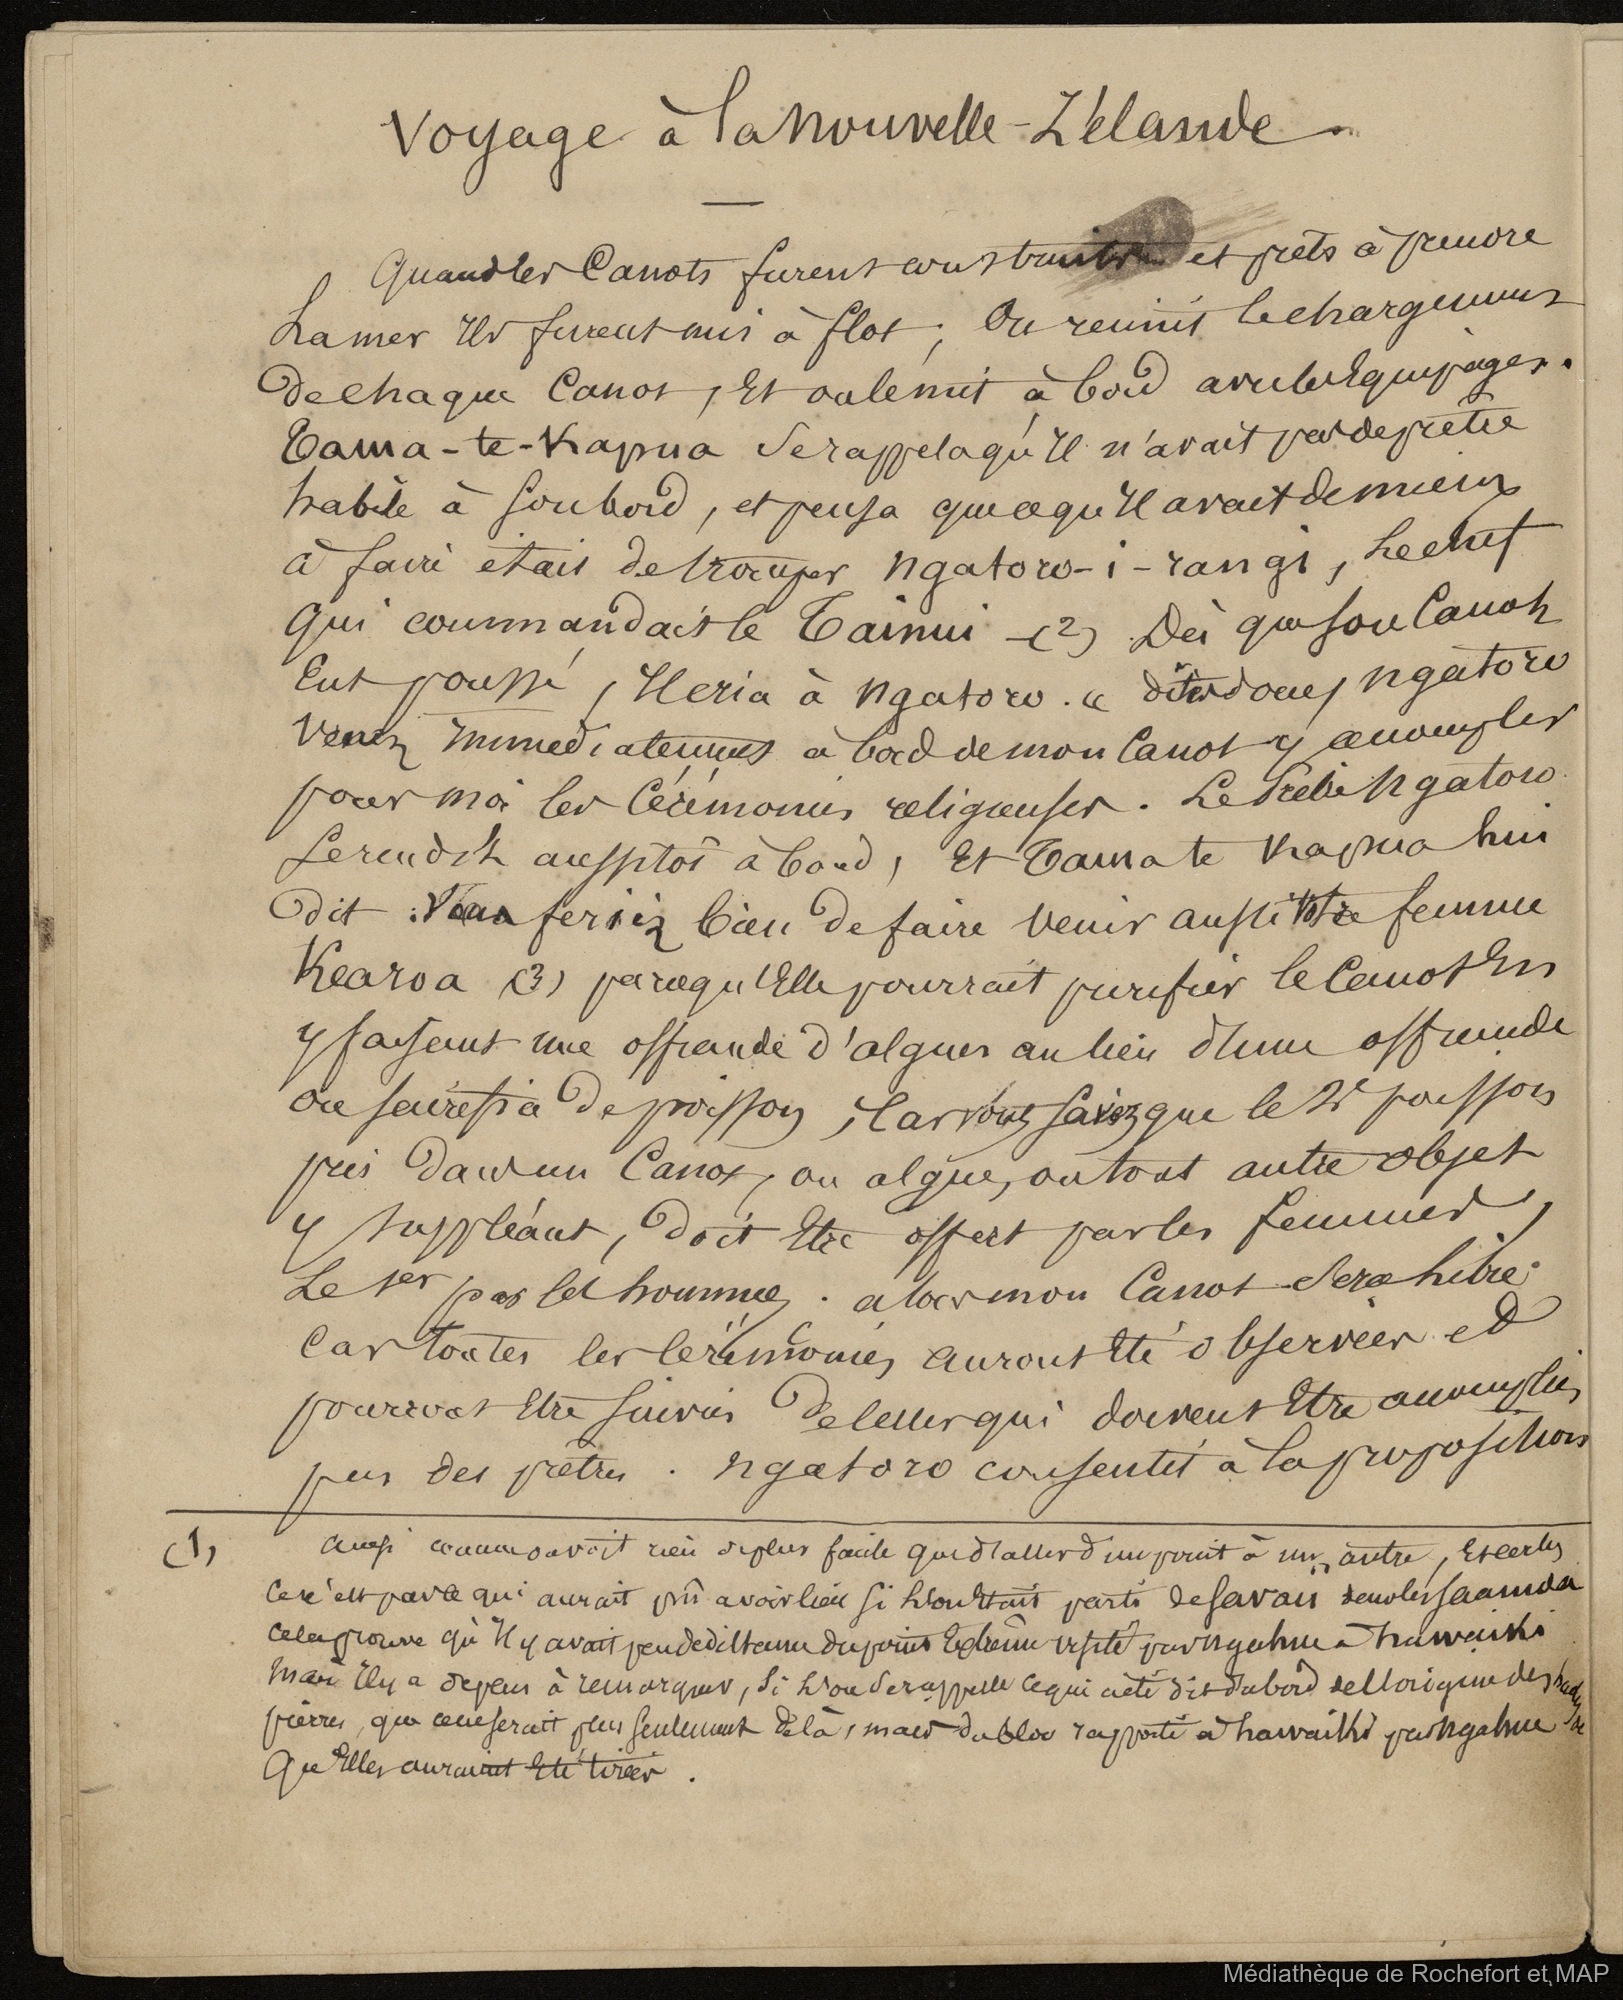 Voyage à la Nouvelle-Zélande
Quand les Canots furent construits et prêts à prendre
La mer Ils furent mis à flot ; On réunit le chargement
De chaque Canot, Et on le mit à bord avec les Equipages.
Tama-te-Kapua Se rappela qu'Il n'avait pas de prêtre
habile à Son bord, et pensa que ce qu'Il avait de mieux
à faire était de tromper Ngatoro-i-rangi, Le chef
Qui commandait le Tainui (2) Dès que son Canot
Eut poussé, Il cria à Ngatoro. « dites donc, Ngatoro
Venez Immédiatement à bord de mon Canot y accomplir
pour moi les Cérémonies religieuses. Le Prêtre Ngatoro
Se rendit aussitôt à bord, Et Tama te Kapua lui
Dit : Vous feriez bien De faire Venir aussi Votre femme
Kearoa (3) parcequ'Elle pourrait purifier le Canot En
y faisant une offrande d'algues au lieu d'une offrande
De poisson, Car vous savez que le 2e poisson
pris Dans un Canot, ou algue, ou tout autre objet
y suppléant, Doit Etre offert par les femmes,
Le 1er par les hommes. alors mon Canot Sera Libre
Car toutes les Cérémonies auront Eté observées et
pourront Etre Suivies De celles qui doivent Etre accomplies
par des prêtres. Ngatoro consentit à la proposition
(1) Aussi comme on voit rien de plus facile que d'aller d'un point à un autre, Et certes
Ce n'est pas ce qui aurait pû avoir lieu Si L'on Etait parti de Savaii dans les Saamoa
Cela prouve qu'Il y avait peu de distance du point Extrême visité par Ngahue à hawaiki
Mais Il y a de plus à remarquer, Si L'on Se rappelle Ce qui a été dit d'abord de l'origine des haches de
pierres, que ce ne serait plus seulement De là, mais du bloc rapporté à hawaiki par Ngahue
Qu'Elles auraient Eté tirées.
Médiathèque de Rochefort et MAP